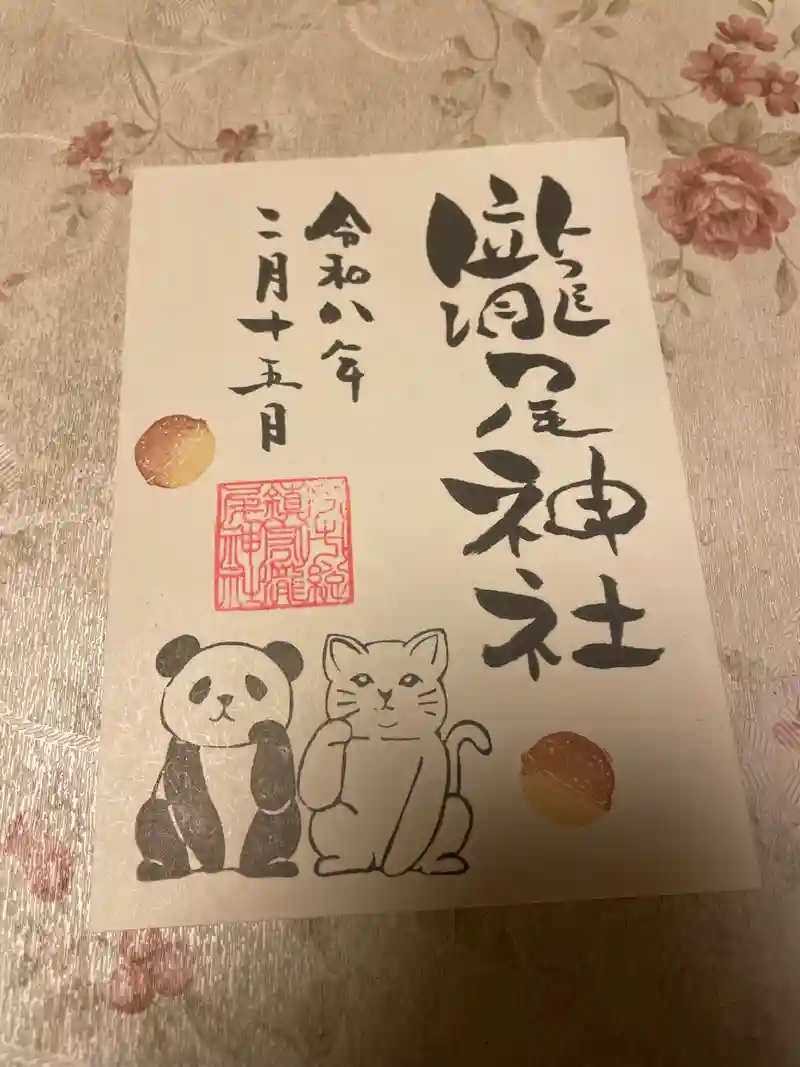 瀧尾神社
令和八年
二月十五日
総鎮守瀧
尾神社